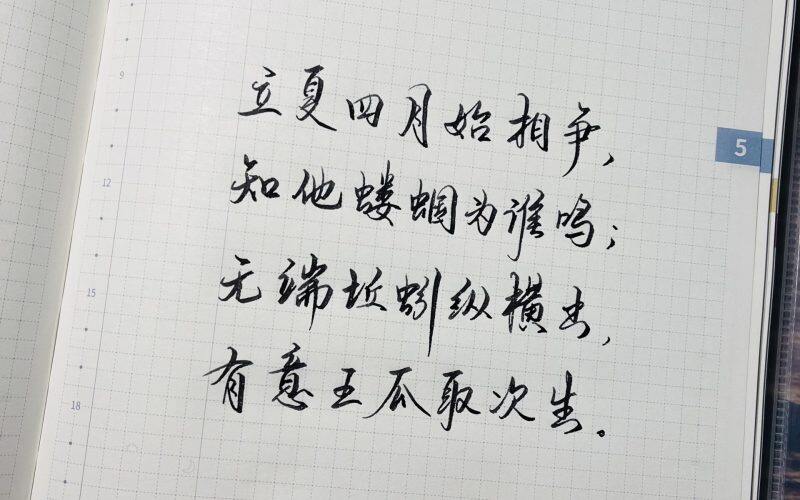 立夏四月始相争，
知他蝼蝈为谁鸣；
无端坵蚓纵横出，
有意王瓜取次生。
5
9
12
15
18